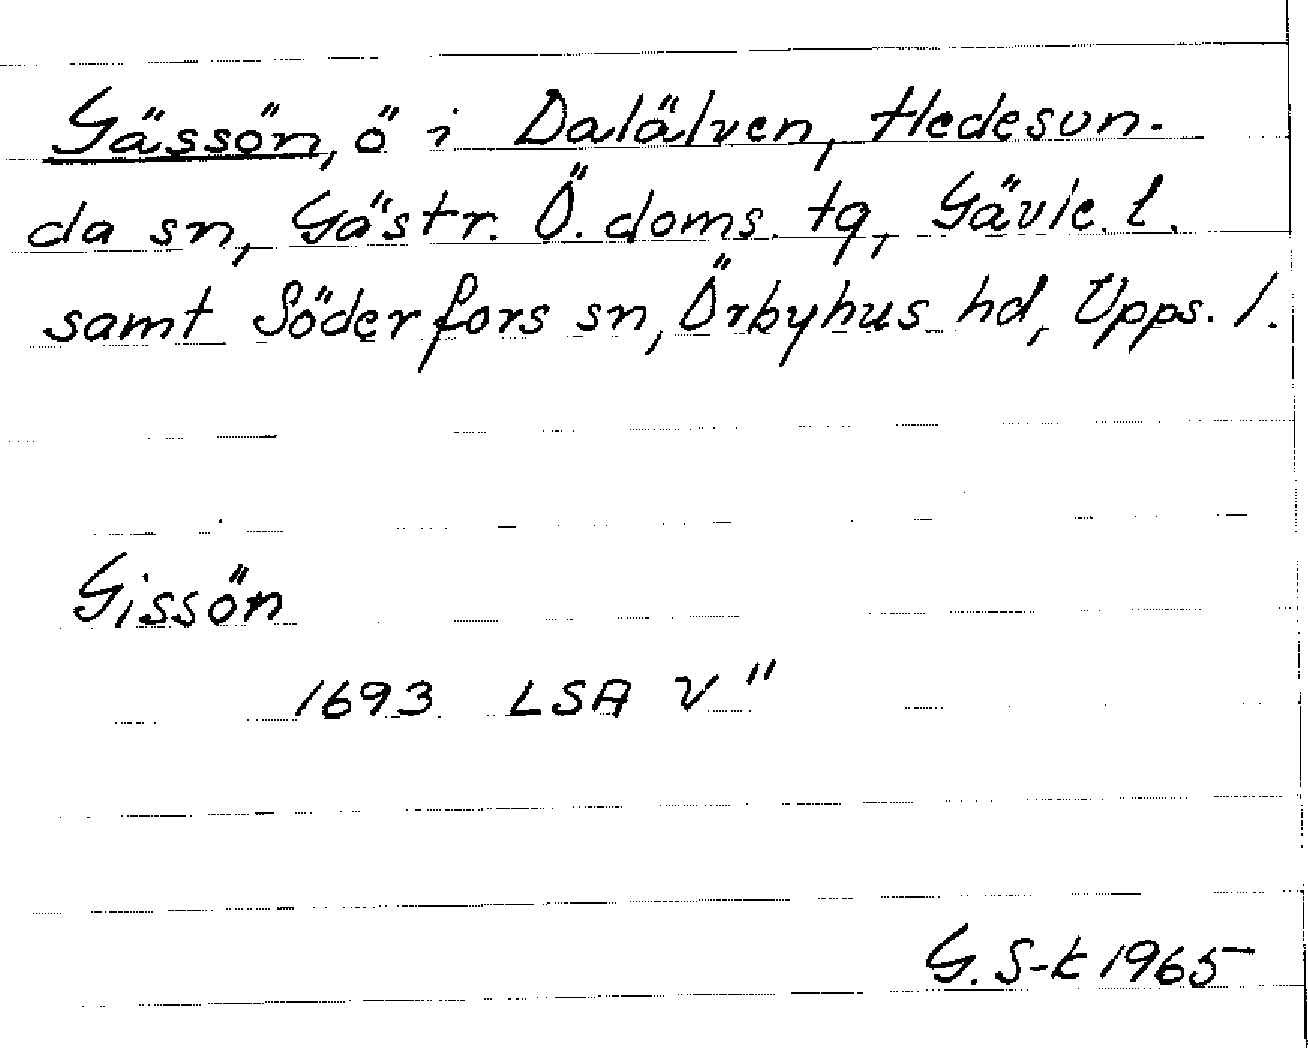 Gässön, ö i Dalälven, Hedesun-
da sn, Gästr. Ö. doms. tg, Gävle. l.
samt Söderfors sn, Örbyhus hd, Upps. l.
Gissön
1693 LSA V"
G. S-k 1965